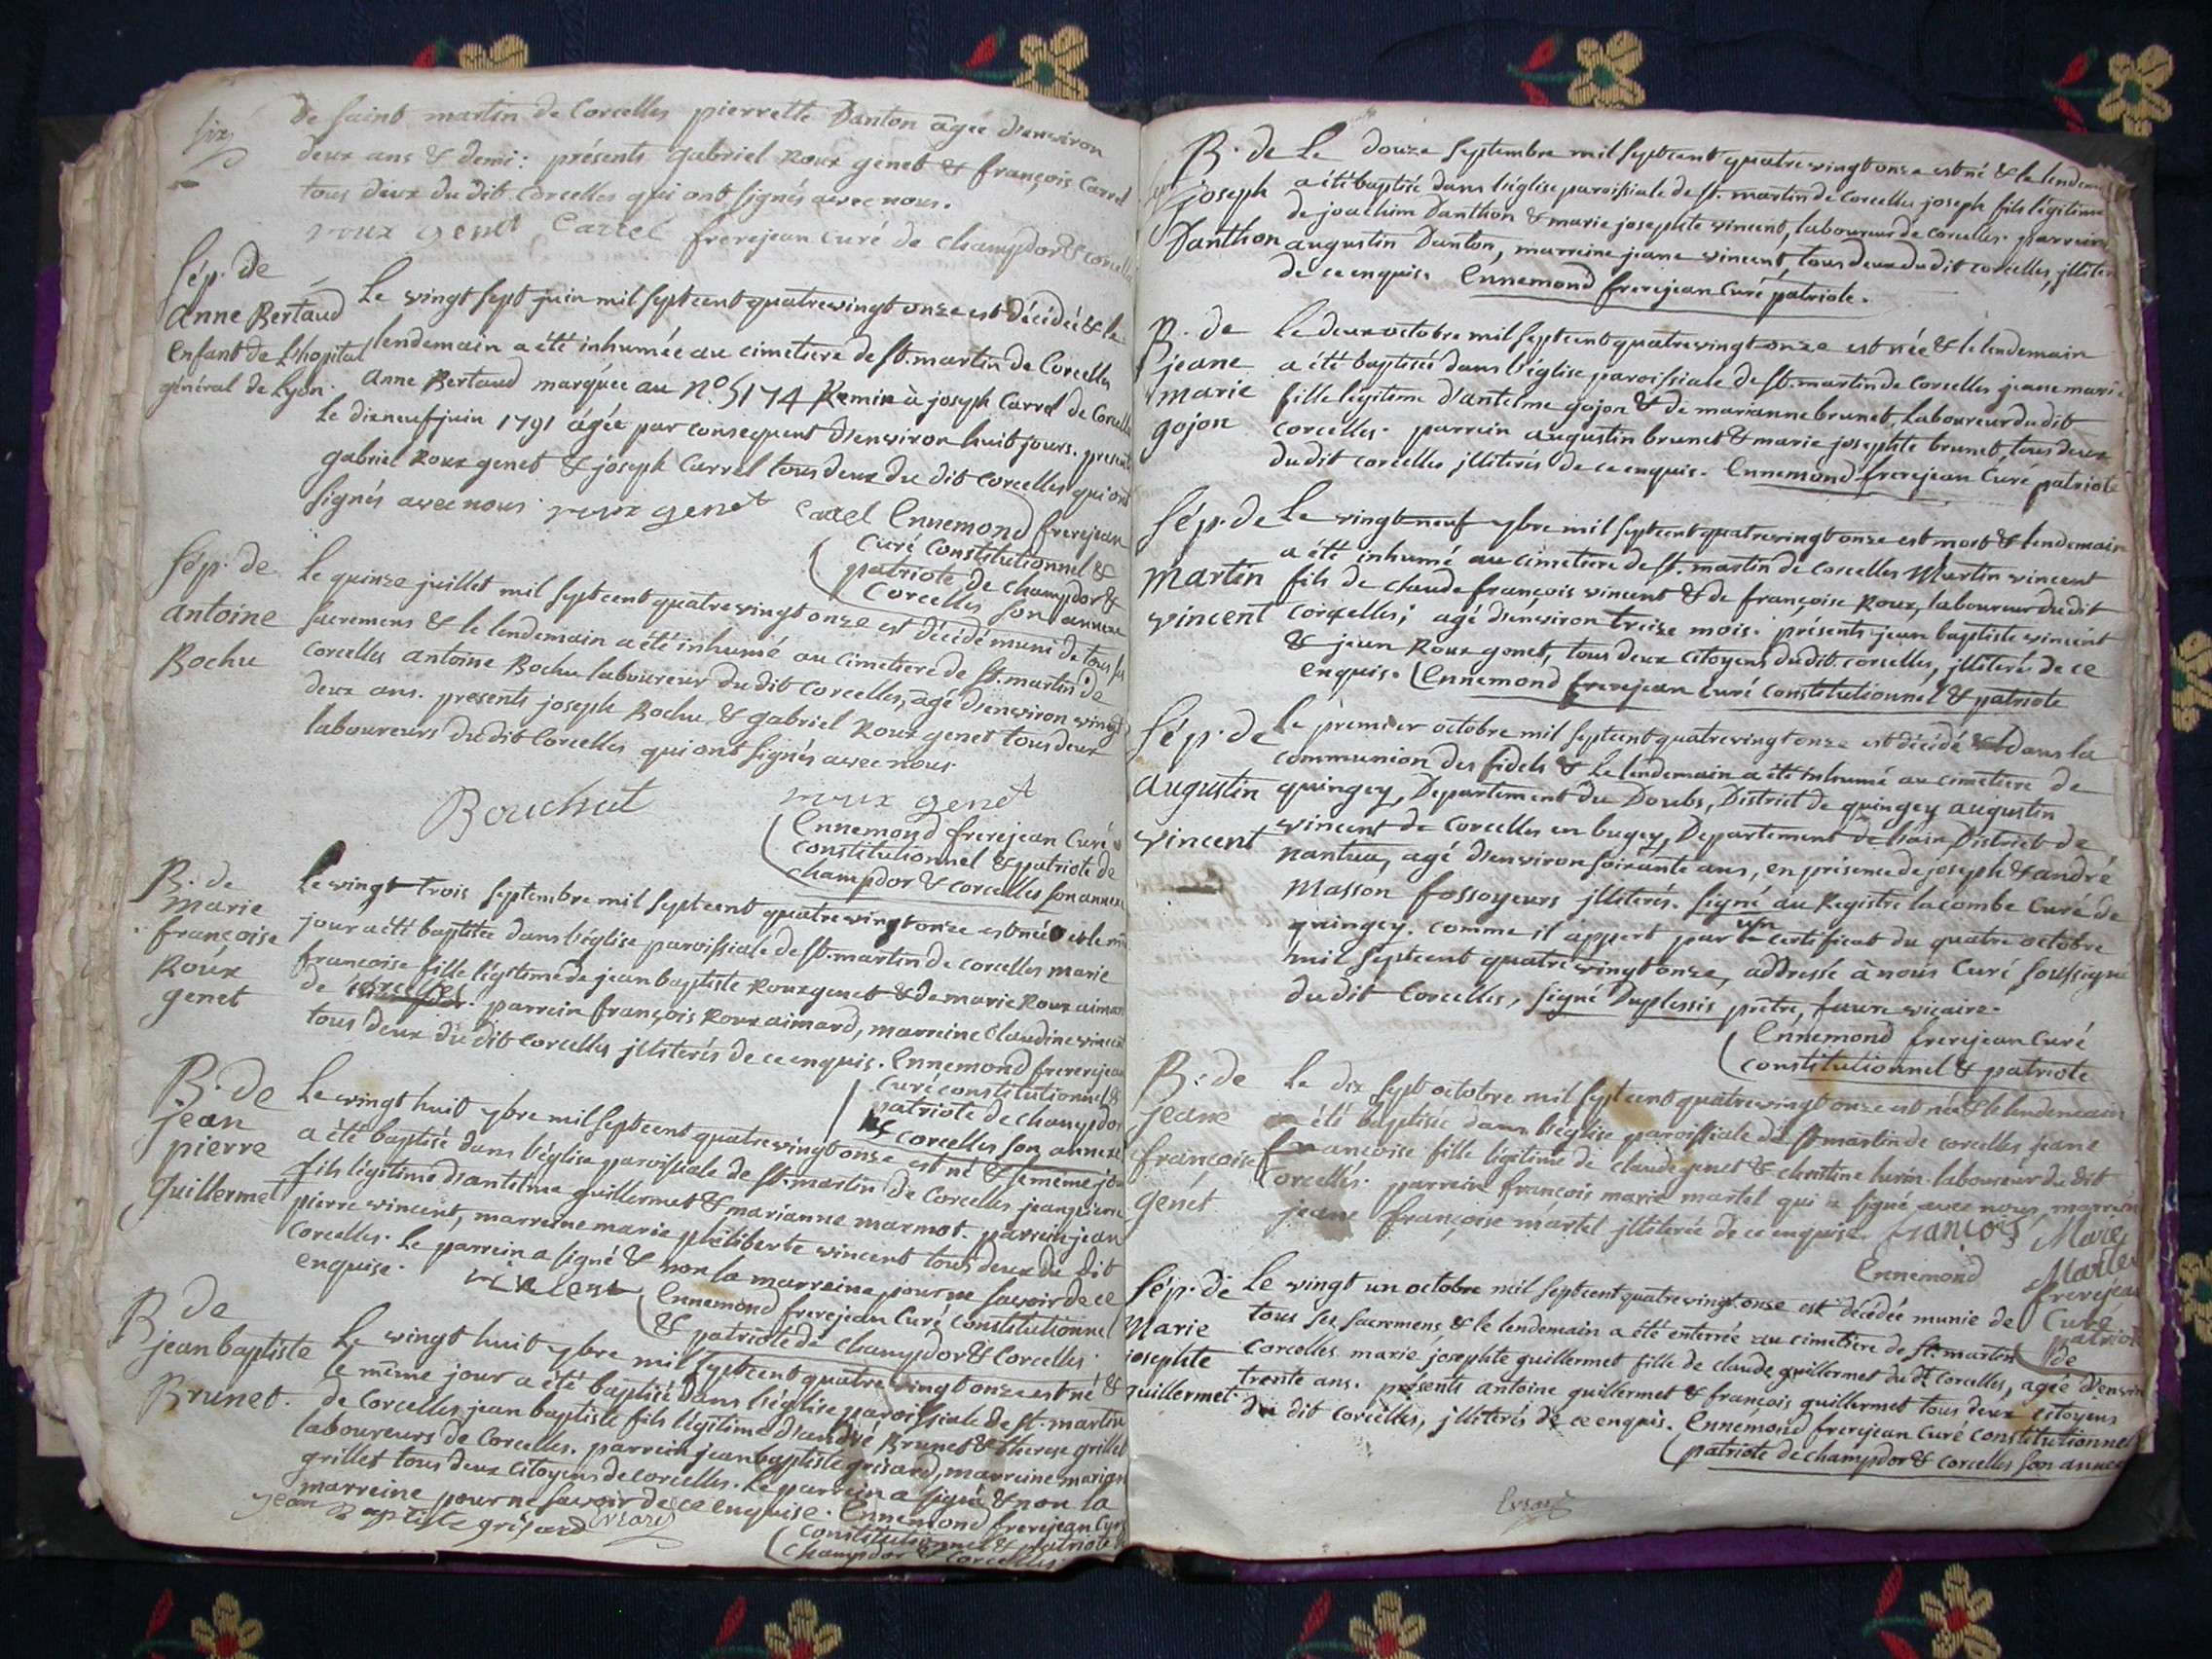 six
de saint martin de Corcelles pierrette Danton agée d'environ
deux ans & demi: présents gabriel Roux genet & françois Carrel
tous deux du dit Corcelles qui ont signés avec nous.
roux genet Carrel frerejean curé de champdor & corcelles
Sép. de
Anne Bertaud
Enfant de L'hopital
général de Lyon.
Le vingt sept juin mil sept cent quatrevingt onze est décédée & le
lendemain a été inhumée au cimetiere de St. martin de Corcelles
Anne Bertaud marquée au N.o 5174 Remise à joseph Carrel de Corcelles
Le dixneuf juin 1791 agée par consequent d'environ huit jours. presents
gabriel Roux genet & joseph Carrel tous deux du dit Corcelles qui ont
signés avec nous. roux genet Carrel Ennemond frerejean
Curé Constitutionnel &
patriote de champdor &
Corcelles son annexe
Sép. de
antoine
Bochu
Le quinze juillet mil sept cent quatrevingt onze est décédé muni de tous ses
sacremens & le lendemain a été inhumé au cimetiere de St. martin de
corcelles antoine Bochu laboureur du dit Corcelles, agé d'environ vingt
deux ans. presents joseph Bochu & gabriel Roux genet tous deux
laboureurs du dit Corcelles qui ont signés avec nous.
Bouchut roux genet
Ennemond frerejean Curé
constitutionnel & patriote de
champdor & corcelles son annexe
B. de
marie
françoise
Roux
genet
Le vingt trois septembre mil sept cent quatrevingt onze est née et le mê
jour a été baptisée dans l'église paroissiale de St. martin de corcelles marie
francoise fille légitime de jean baptiste Roux genet & de marie Roux aimard
de corcelles. parrein françois Roux aimard, marreine Claudine vincent
tous deux du dit Corcelles jlliterés de ce enquis. Ennemond frererejean
Curé constitutionnel &
patriote de champdor
& corcelles son annexe
B. de
jean
pierre
guillermet
Le vingt huit 7bre mil sept cent quatrevingt onze est né & le même jour
a été baptisé dans l'église paroissiale de St. martin de Corcelles jean pierre
fils légitime d'antelme guillermet & marianne marmot. parrein jean
pierre vincent, marreine marie philiberte vincent tous deux du dit
Corcelles. Le parrein a signé & non la marreine pour ne savoir de ce
enquise. vincent Ennemond frerejean Curé constitutionnel
& patriote de champdor & Corcelles.
B de
jean baptiste
Brunet.
Le vingt huit 7bre mil sept cent quatre vingt onze est né &
le même jour a été baptisé dans l'église paroissiale de St. martin
de Corcelles jean baptiste fils légitime d'andré Brunet & therese grillet
laboureurs de Corcelles. parrein jean baptiste grisard, marreine marian
grillet tous deux citoyens de corcelles. Le parrein a signé & non la
marreine pour ne savoir de ce enquise. Ennemond frerejean Curé
jean Baptiste grisard
Constitutionnel & patriote
champdor & Corcelles.
B. de
joseph
Danthon
Le douze septembre mil sept cent quatre vingt onze est né & le lendem
a été baptisé dans l'église paroissiale de St. martin de Corcelles joseph fils légitime
de joachim Danthon & marie josephte vincent, laboureurs de corcelles. parrein
augustin Danton, marreine jeane vincent, tous deux du dit corcelles, jlliter
de ce enquis. Ennemond frerejean Curé patriote.
B. de
jeane
marie
gojon
Le deux octobre mil sept cent quatrevingt onze est née & le lendemain
a été baptisée dans l'église paroissiale de St. martin de Corcelles jeane marie
fille légitime d'antelme gojon & de marianne brunet, Laboureur du dit
corcelles. parrein augustin brunet & marie josephte brunet, tous deux
du dit corcelles jlliterés de ce enquis. Ennemond frerejean Curé patriote
Sép. de
martin
vincent
Le vingt neuf 7bre mil sept cent quatrevingt onze est mort & lendemain
a été inhumé au cimetiere de St. martin de corcelles Martin vincent
fils de claude françois vincent & de françoise Roux, laboureur du dit
corcelles; agé d'environ treize mois. présents jean baptiste vincent
& jean Roux genet, tous deux citoyens du dit corcelles, jlliterés de ce
enquis. Ennemond frerejean Curé constitutionnel & patriote
Sép. de
augustin
vincent
Le premier octobre mil sept cent quatrevingt onze est décédé dans la
communion des fidels & le lendemain a été inhumé au cimetiere de
quingey, Departement du Doubs, District de quingey augustin
vincent de Corcelles en bugey, Departement de l'ain District de
nantua, agé d'environ soixante ans, en présence de joseph & andré
Masson fossoyeurs jlliterés. signé au Registre lacombe Curé de
quingey. comme il appert par un certificat du quatre octobre
mil sept cent quatre vingt onze, addressé à nous Curé soussigné
du dit Corcelles, signé Duplessis prêtre, faure vicaire.
Ennemond frerejean Curé
constitutionnel & patriote
B. de
jeane
françoise
genet
Le dix sept octobre mil sept cent quatrevingt onze est née & le lendemain
a été baptisée dans l'église paroissiale de St martin de corcelles jeane
francoise fille légitime de claude genet & laboureur du dit
Corcelles. parrein françois marie martel qui a signé avec nous, marreine
jeane françoise martel jlliterée de ce enquise. francois Marie
Martel
Ennemond frerejean
Curé
patriote
de
Sép. de
Marie
josephte
guillermet
Le vingt un octobre mil sept cent quatrevingt onze est décédée munie de
tous ses sacremens, & le lendemain a été enterrée au cimetiere de St. martin
Corcelles marie josephte guillermet fille de claude guillermet du dt. Corcelles, agée d'environ
trente ans. présents antoine guillermet & françois guillermet tous deux citoyens
du dit corcelles, jlliterés de ce enquis. Ennemond frerejean Curé constitutionnel
patriote de champdor & corcelles son annexe